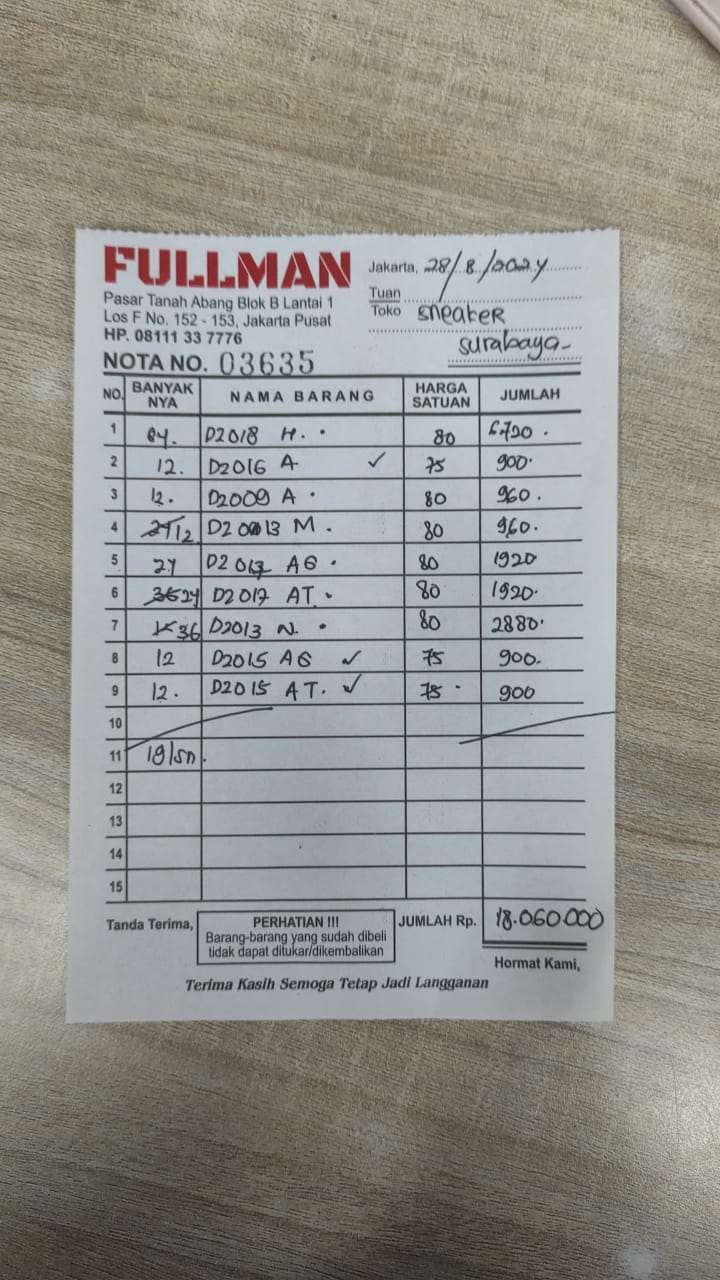 FULLMAN
Pasar Tanah Abang Blok B Lantai 1
Los F No. 152 - 153, Jakarta Pusat
HP. 08111 33 7776
NOTA NO. 03635
Jakarta, 28/8/2024
Tuan
Toko sneaker
surabaya-
NO. BANYAK NYA NAMA BARANG HARGA SATUAN JUMLAH
1 84. D2018 H. 80 6.720.
2 12. D2016 A ✓ 75 900.
3 12. D2009 A. 80 960.
4 12. D2013 M. 80 960.
5 24 D2017 AG. 80 1920
6 24 D2017 AT. 80 1920.
7 36 D2013 N. 80 2880.
8 12 D2015 AG ✓ 75 900.
9 12. D2015 AT. ✓ 75 900
10
11 19/sn.
12
13
14
15
Tanda Terima,
PERHATIAN !!!
Barang-barang yang sudah dibeli
tidak dapat ditukar/dikembalikan
JUMLAH Rp. 18.060.000
Hormat Kami,
Terima Kasih Semoga Tetap Jadi Langganan